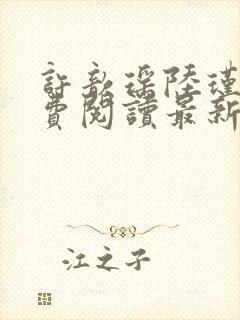 許歆瑤陸瑾
費閱讀最新
江之子